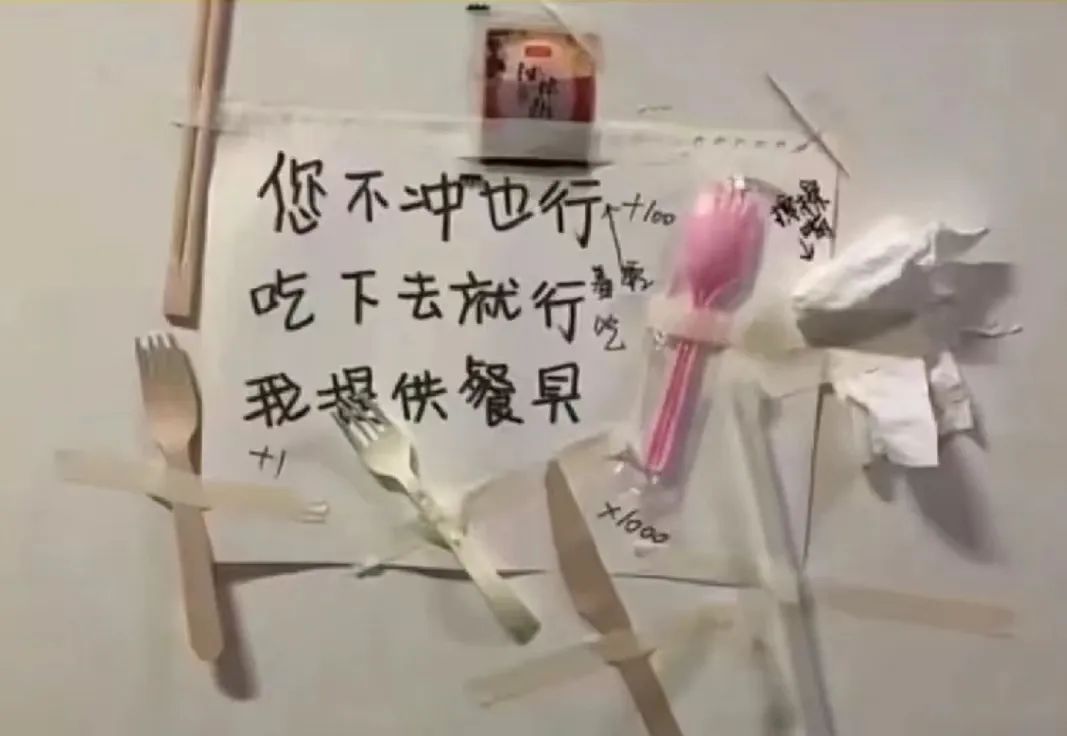 您不冲也行
+100
吃下去就行
着
吃
我提供餐具
+1
×1000